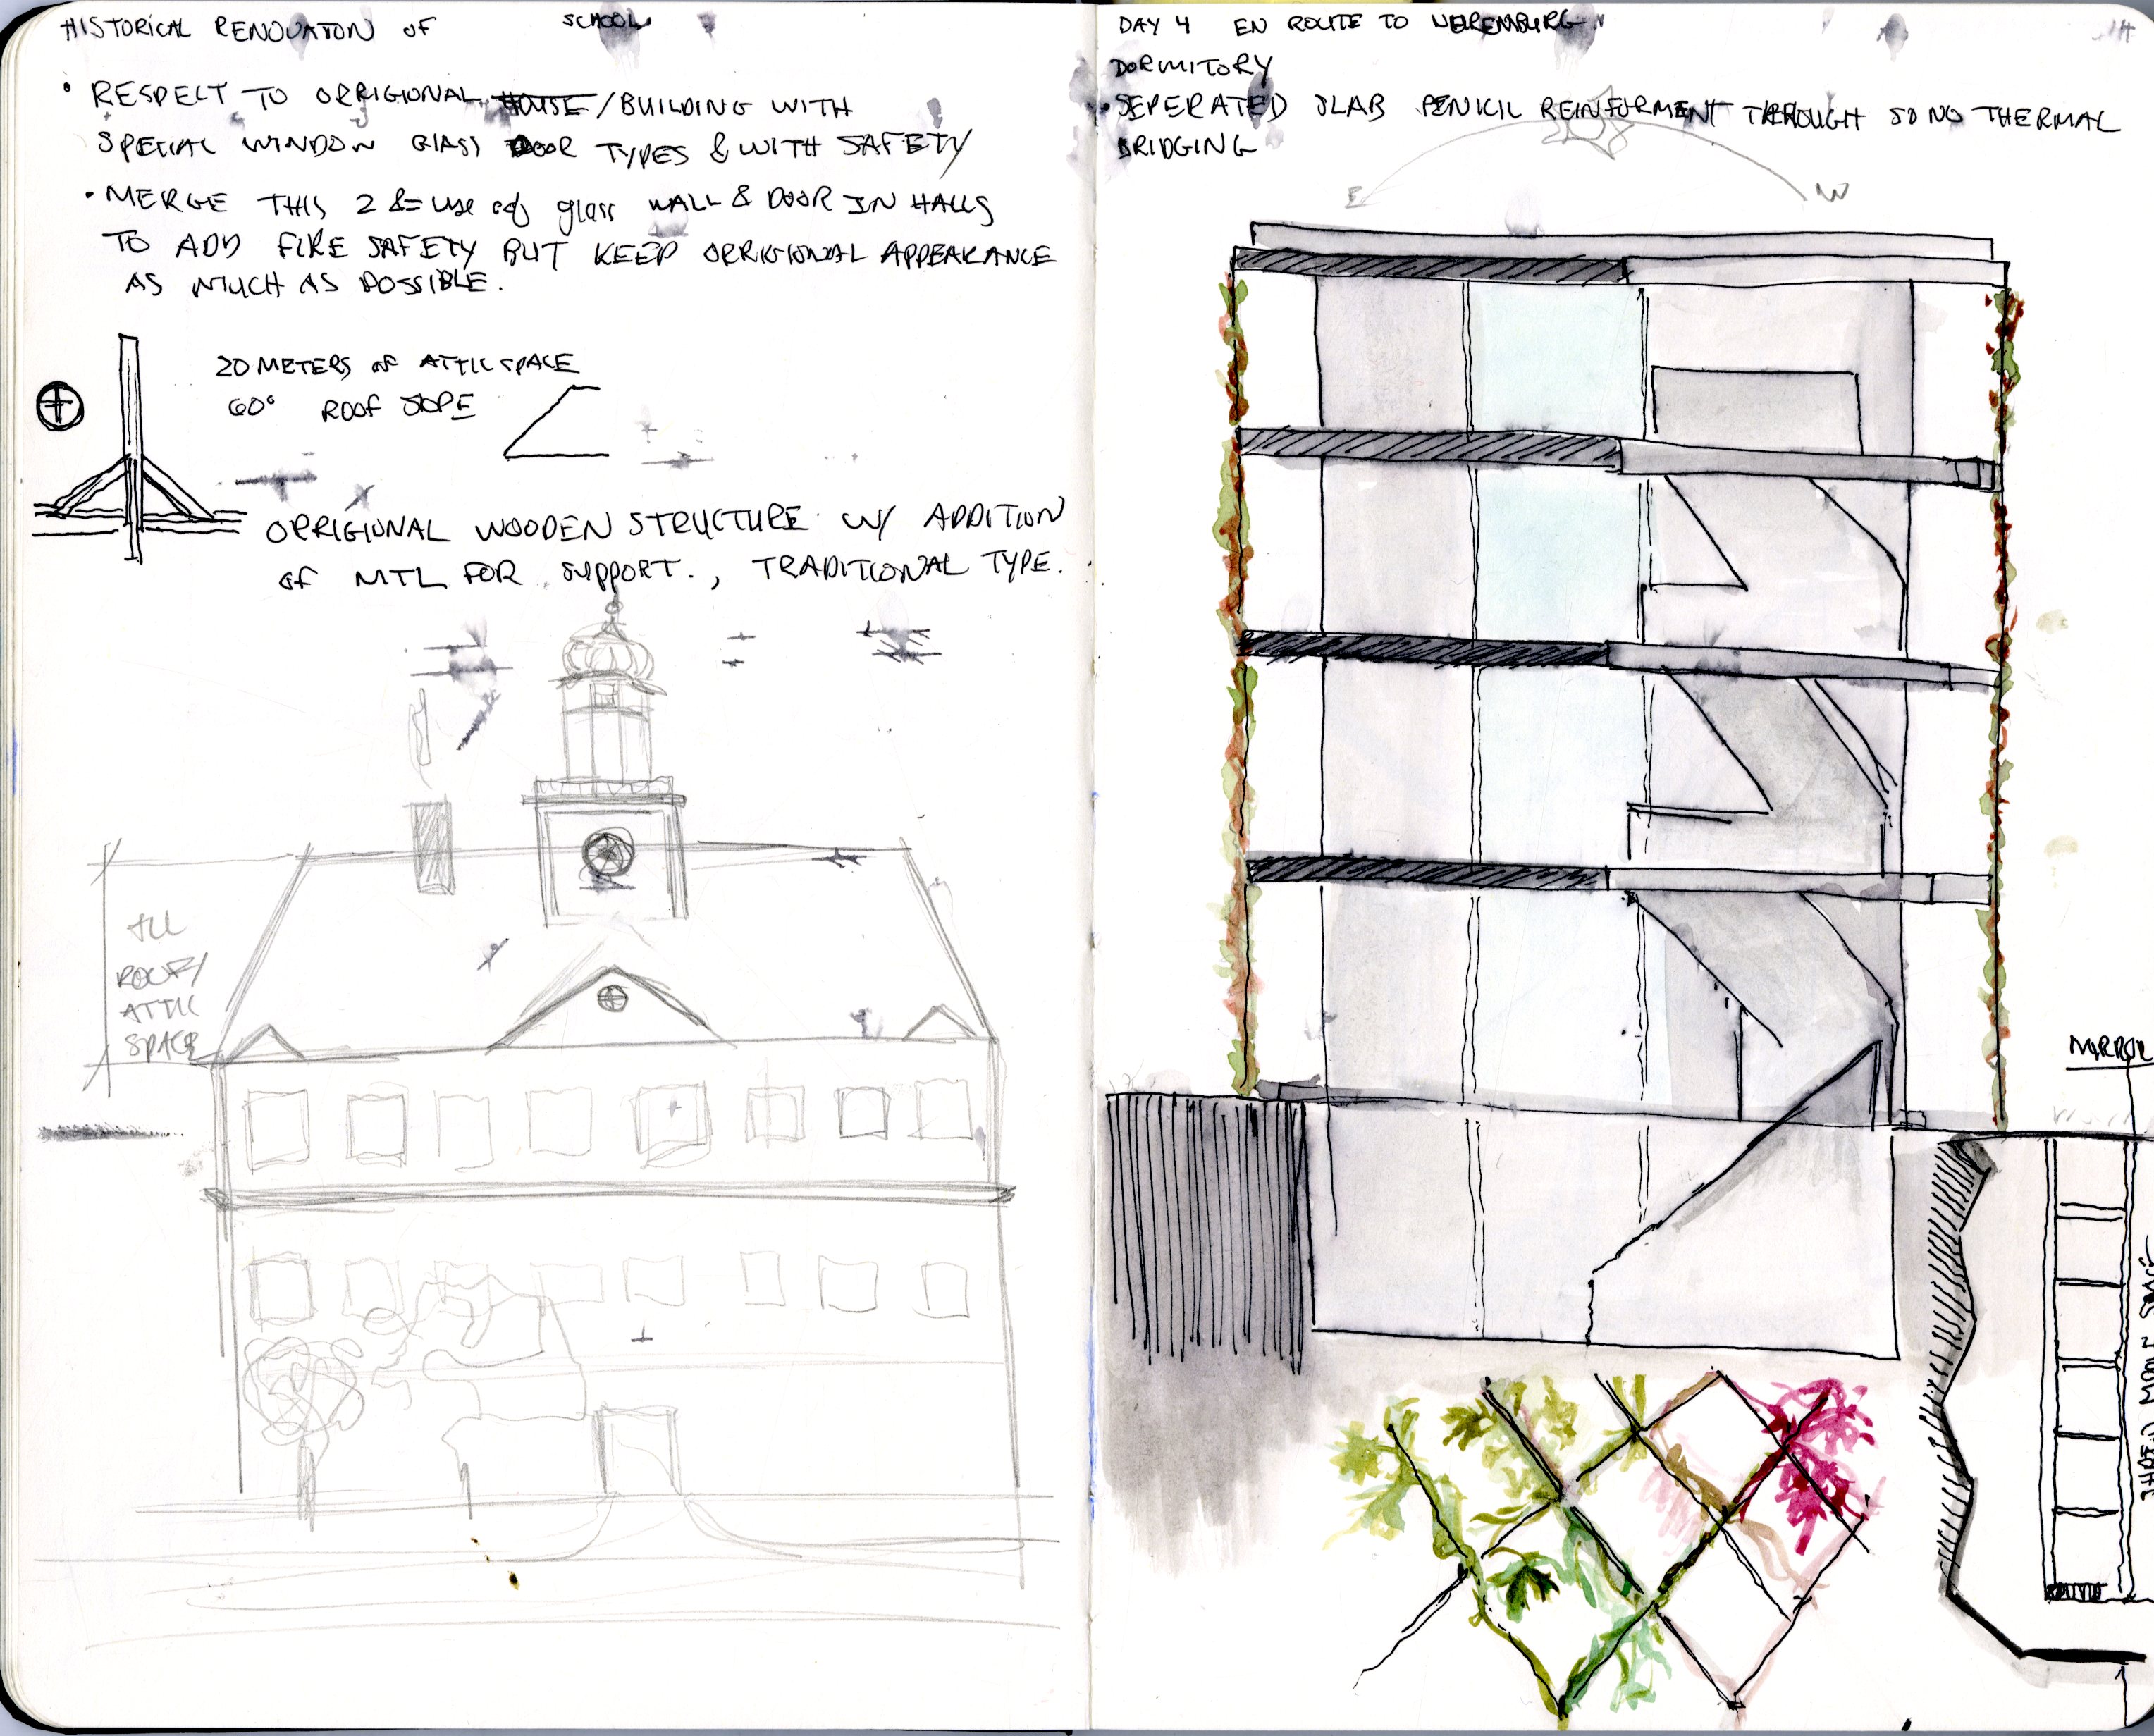 HISTORICAL RENOVATON OF SCHOOL
• RESPECT TO ORRIGIONAL HOUSE/BUILDING WITH
SPECIAL WINDOW GLASS DOOR TYPES & WITH SAFETY
• MERGE THIS 2 &= use of glass WALL & DOOR IN HALLS
TO ADD FIRE SAFETY BUT KEEP ORRIGIONAL APPEARANCE
AS MUCH AS POSSIBLE.
20 METERS OF ATTIC SPACE
60° ROOF SLOPE
ORRIGIONAL WOODEN STRUCTURE W/ ADDITION
of MTL FOR SUPPORT., TRADITIONAL TYPE.
ROOF/
ATTIC
SPACE
DAY 4 EN ROUTE TO NUREMBURG
14
DORMITORY
• SEPERATED SLAB PENKIL REINFORMENT THROUGH SO NO THERMAL
BRIDGING
E W
MIRROR
SPACE